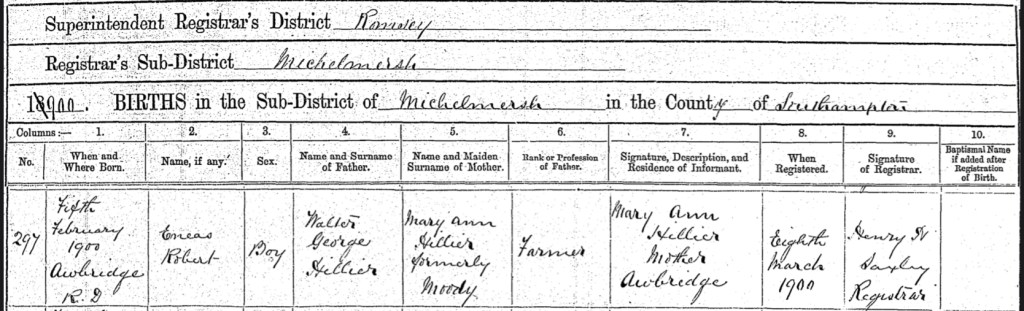 Superintendent Registrar's District Romsey
Registrar's Sub-District Michelmersh
1900. BIRTHS in the Sub-District of Michelmersh in the County of Southampton
Columns:— 1. 2. 3. 4. 5. 6. 7. 8. 9. 10.
No. When and Where Born. Name, if any. Sex. Name and Surname of Father. Name and Maiden Surname of Mother. Rank or Profession of Father. Signature, Description, and Residence of Informant. When Registered. Signature of Registrar. Baptismal Name if added after Registration of Birth.
297
Fifth
February
1900
Awbridge
R.D
Eneas
Robert
Boy
Walter
George
Hillier
Mary Ann
Hillier
formerly
Moody
Farmer
Mary Ann
Hillier
Mother
Awbridge
Eighth
March
1900
Henry W
Saxley
Registrar